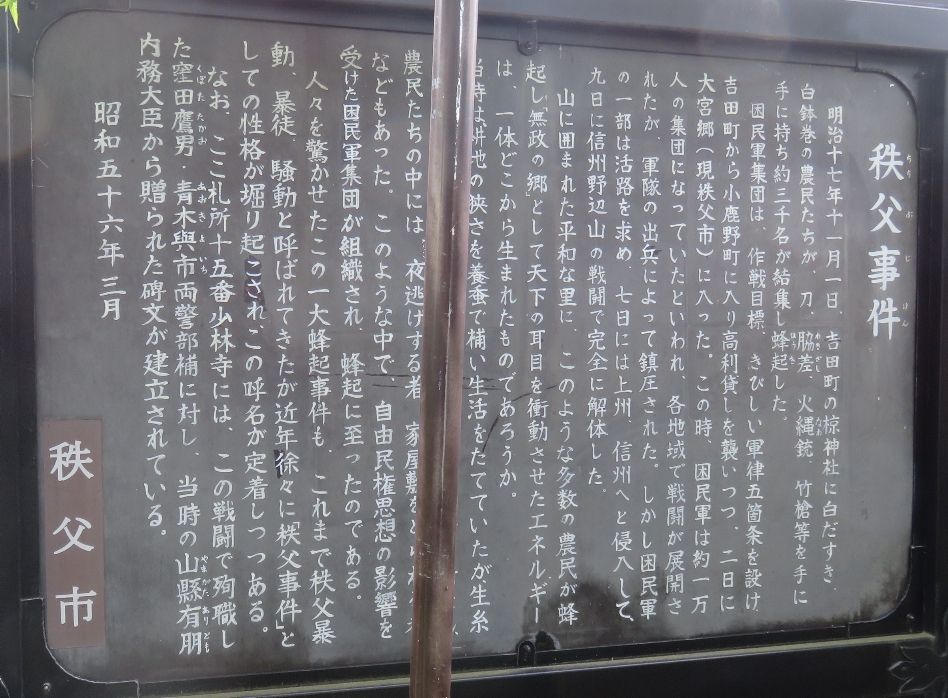 秩父事件
明治十七年十一月一日、吉田町の椋神社に白だすき、
白鉢巻の農民たちが、刀、脇差、火縄銃、竹槍等を手に
手に持ち約三千名が結集し蜂起した。
困民軍集団は、作戦目標、きびしい軍律五箇条を設け、
吉田町から小鹿野町に入り高利貸しを襲いつつ、二日に
大宮郷(現秩父市)に入った。この時、困民軍は約一万
人の集団になっていたといわれ、各地域で戦闘が展開さ
れたが、軍隊の出兵によって鎮圧された。しかし困民軍
の一部は活路を求め、七日には上州、信州へと侵入して、
九日に信州野辺山の戦闘で完全に解体した。
山に囲まれた平和な里に、このような多数の農民が蜂
起し「無政の郷」として天下の耳目を衝動させたエネルギー
は、一体どこから生まれたものであろうか。
当時は耕地の狭さを養蚕で補い生活をたてていたが生糸
農民たちの中には、夜逃げする者、家屋敷を
などもあった。このような中で、自由民権思想の影響を
受けた困民軍集団が組織され、蜂起に至ったのである。
人々を驚かせたこの一大蜂起事件も、これまで秩父暴
動、暴徒、騒動と呼ばれてきたが近年徐々に「秩父事件」と
しての性格が堀り起こされこの呼名が定着しつつある。
なお、ここ札所十五番少林寺には、この戦闘で殉職し
た窪田鷹男・青木與市両警部補に対し、当時の山縣有朋
内務大臣から贈られた碑文が建立されている。
昭和五十六年三月
秩父市